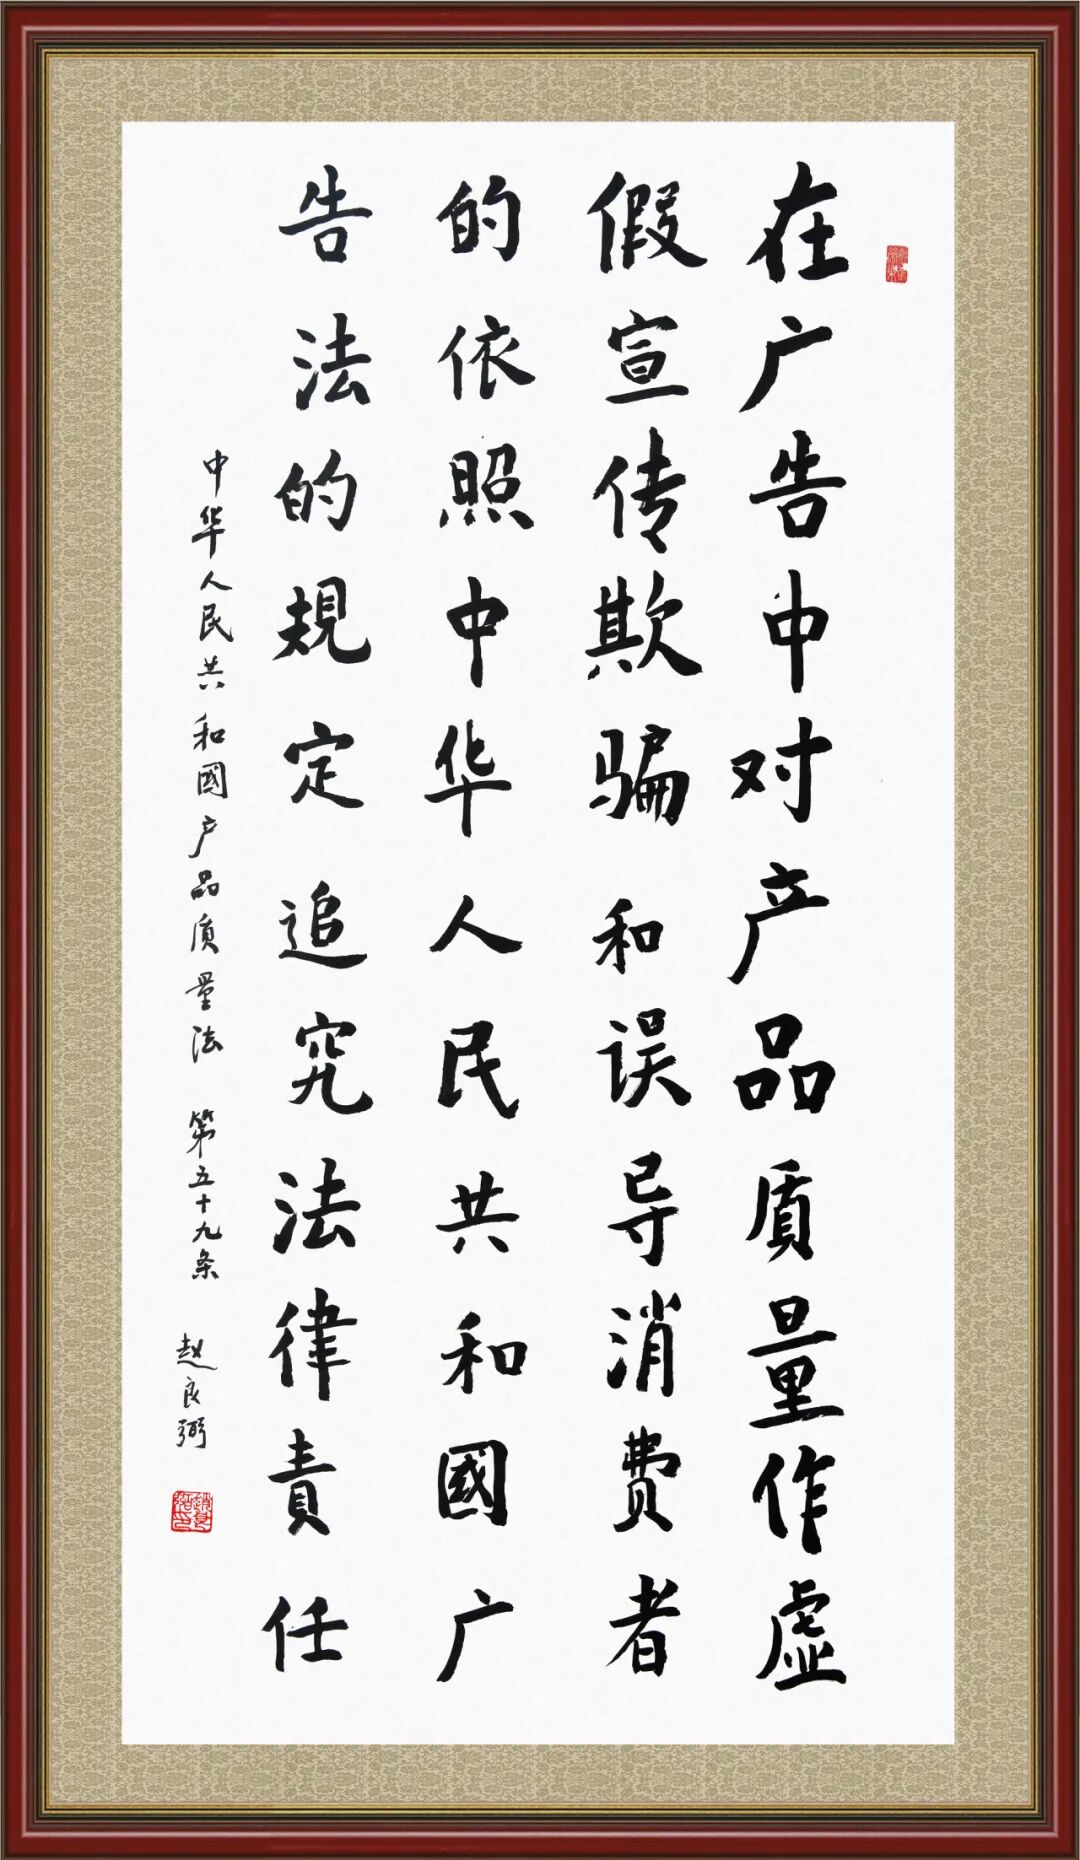 在广告中对产品质量作虚
假宣传欺骗和误导消费者
的依照中华人民共和國广
告法的規定追究法律責任
中华人民共和國产品质量法 第五十九条 赵良弼